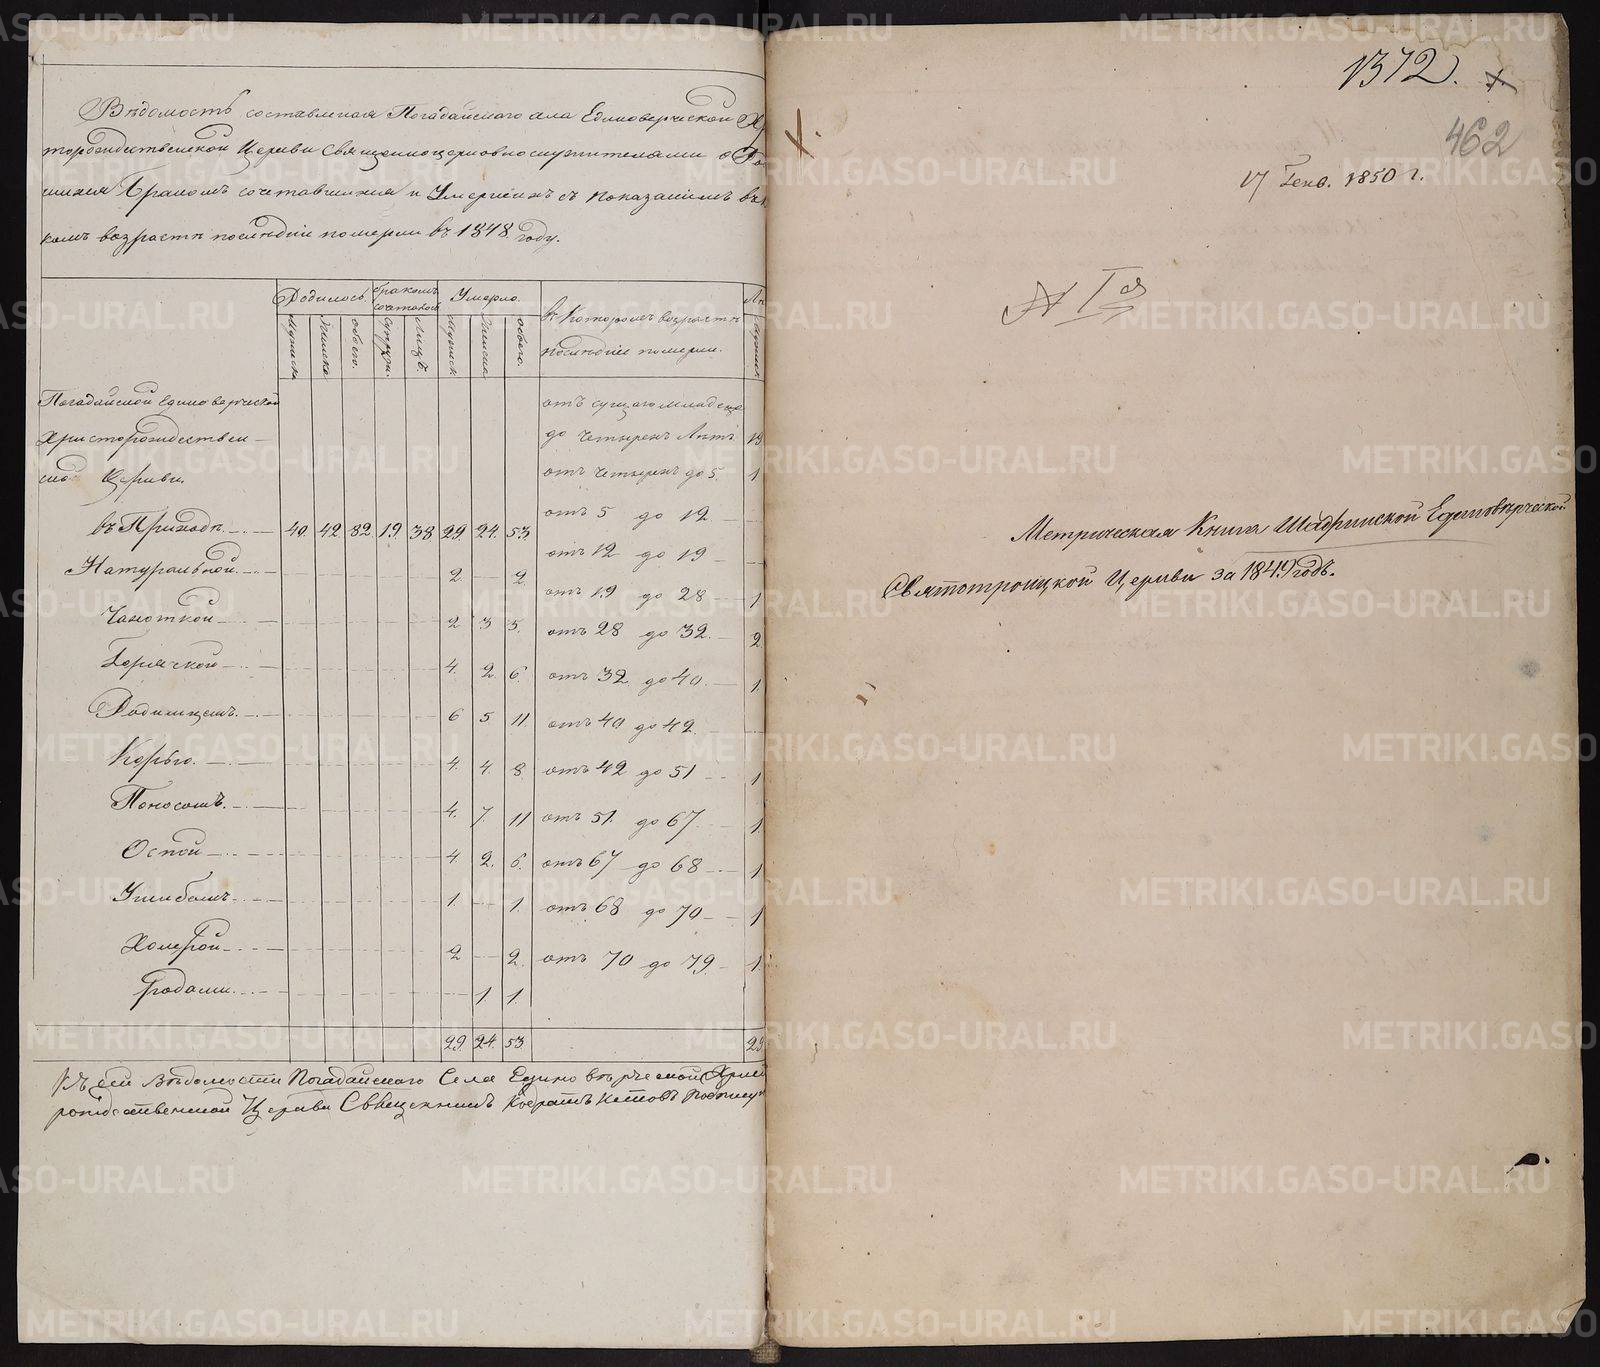 Вѣдомость составленая Погадайского села Единоверческой Хр
торождественской Церкви Священноцерковнослужителями о Ро
шихся Бракомъ сочетавшихся и Умершихъ съ показаніемъ въ к
комъ возрастѣ послѣдніи померли въ 1848 году.
Родилось. бракомъ сочетовось Умерло. въ Которомъ возрастѣ послѣдніи померли.
Мужеска Женска обоего. Супруж. Лицъ. Мужеск Женска обоего.
Погадайской Единоверческой
Христорождествен-
ской Церкви.
отъ сущаго младенца
до четырехъ Лѣтъ 19
отъ четырехъ до 5. 1
въ Приходѣ. 40. 42 82. 19. 38 29. 24. 53. отъ 5 до 12
отъ 12 до 19
Натуральной. 2 2. отъ 19 до 28 1
Чахоткой 2 3 5. отъ 28 до 32. 2
Горячкой 4. 2. 6. отъ 32 до 40. 1
Родимцемъ. 6 5 11. отъ 40 до 42.
Корью. 4. 4. 8. отъ 42 до 51 1
Поносомъ. 4. 7. 11 отъ 51. до 67. 1
Оспой 4. 2. 6. отъ 67 до 68 1
Ушибомъ. 1. 1. отъ 68 до 70 1
Холерой 2 2. отъ 70 до 79. 1
Родами. 1 1.
29. 24. 53. 29
Къ сей Вѣдомости Погадайского Села Единовѣрческой Хрис
рождественной Церкви Священникъ Кодратъ Котовъ подпису
1372.
462
17 Генв. 1850 г.
№ 1й
Метрическая Книга Шадринской Единовѣрческой
Святотроицкой Церкви за 1849 годъ.
METRIKI.GASO-URAL.RU